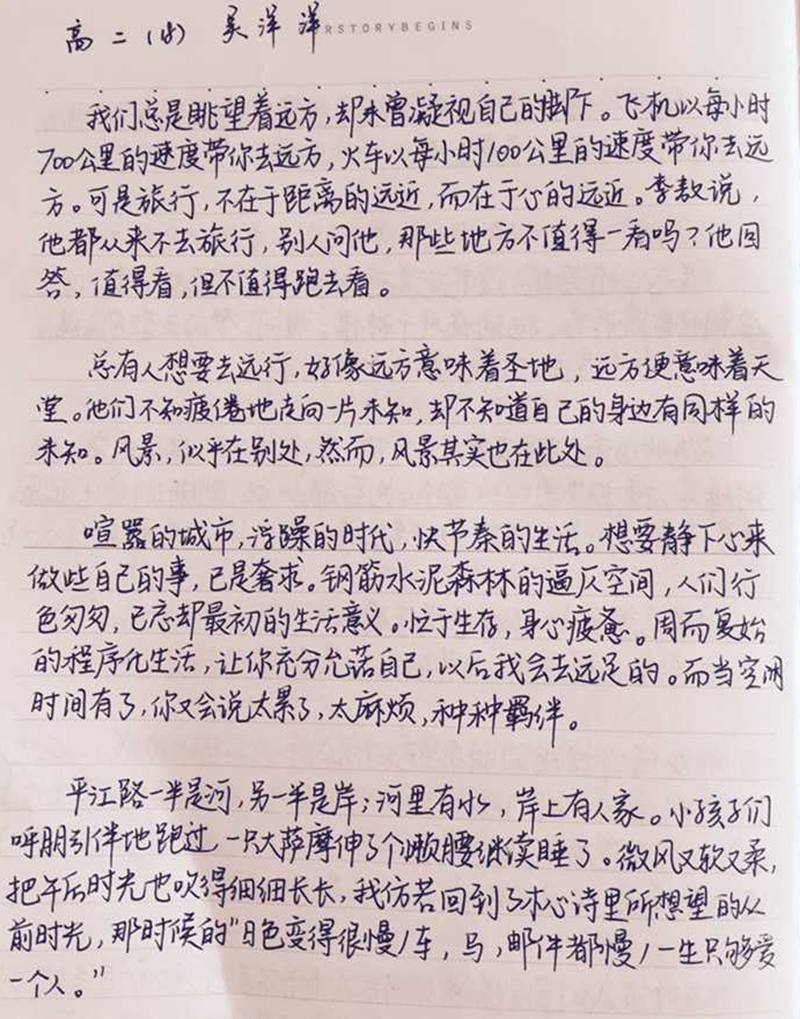 高二(4) 吴洋洋
RSTORYBEGINS
我们总是眺望着远方,却未曾凝视自己的脚下。飞机以每小时
700公里的速度带你去远方,火车以每小时100公里的速度带你去远
方。可是旅行,不在于距离的远近,而在于心的远近。李敖说,
他都从来不去旅行,别人问他,那些地方不值得一看吗?他回
答,值得看,但不值得跑去看。
总有人想要去远行,好像远方意味着圣地,远方便意味着天
堂。他们不知疲倦地走向一片未知,却不知道自己的身边有同样的
未知。风景,似乎在别处,然而,风景其实也在此处。
喧嚣的城市,浮躁的时代,快节奏的生活。想要静下心来
做些自己的事,已是奢求。钢筋水泥森林的逼仄空间,人们行
色匆匆,已忘却最初的生活意义。忙于生存,身心疲惫。周而复始
的程序化生活,让你充分允诺自己,以后我会去远足的。而当空闲
时间有了,你又会说太累了,太麻烦,种种羁绊。
平江路一半是河,另一半是岸;河里有水,岸上有人家。小孩子们
呼朋引伴地跑过,一只大萨摩伸了个懒腰继续睡了。微风又软又柔,
把午后时光也吹得细细长长,我仿若回到了木心诗里所想望的从
前时光,那时候的"日色变得很慢/车,马,邮件都慢/一生只够爱
一个人。"